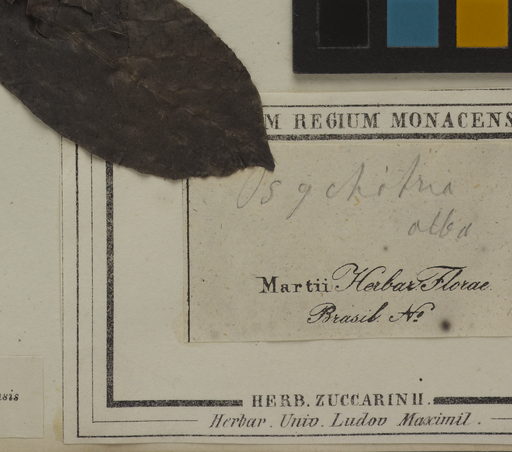 M REGIUM MONACENS
Psychotria
alba
Martii Herbar. Florae
Brasil. No.
HERB. ZUCCARINII.
Herbar. Univ. Ludov Maximil.